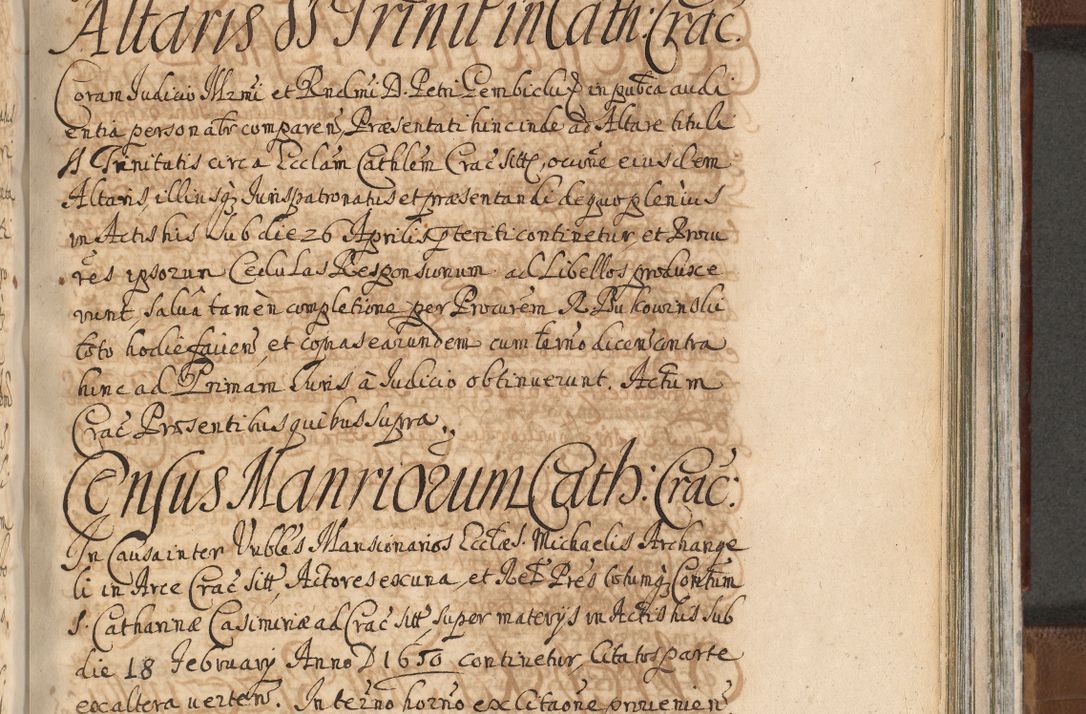 Altaris SS Trinit in Cath: Crac.
Coram Judicio Illrmi et Rndmi D. Petri Gembicki D in pubca audi
entia person altr comparen Præsentati hincinde ad Altare tituli
SS Trinitatis circa Ecclam Cathlem Crac sitt, occone eiusdem
Altaris, illiusq Jurispatronatus et præsentandi de quo plenius
in Actis his sub die 26 Aprilis pteriti continetur, et Procu
res ipsorum Cedulas Responsionum ad Libellos produxe
runt, salvâ tamèn completione per Procurem R. Bukowinski
toto hodie fauen, et copias earundem cum termo dicen contra
hinc ad Primam Juris à Judicio obtinuerunt. Actum
Crac Præsentibus quibus supra.
Census Manriorum Cath: Crac:
In Causa inter Vnbles Mansionarios Eccla S. Michaelis Archange
li in Arce Crac sitt, Actores ex una, et Rel Pres totumq Contum
S. Catharinæ Casimiriæ ad Crac sitt super materijs in Actis his sub
die 18 Februarij Anno D 1650 continetur, Citatos parte
ex altera verten. In termo horno ex Citaone provenien